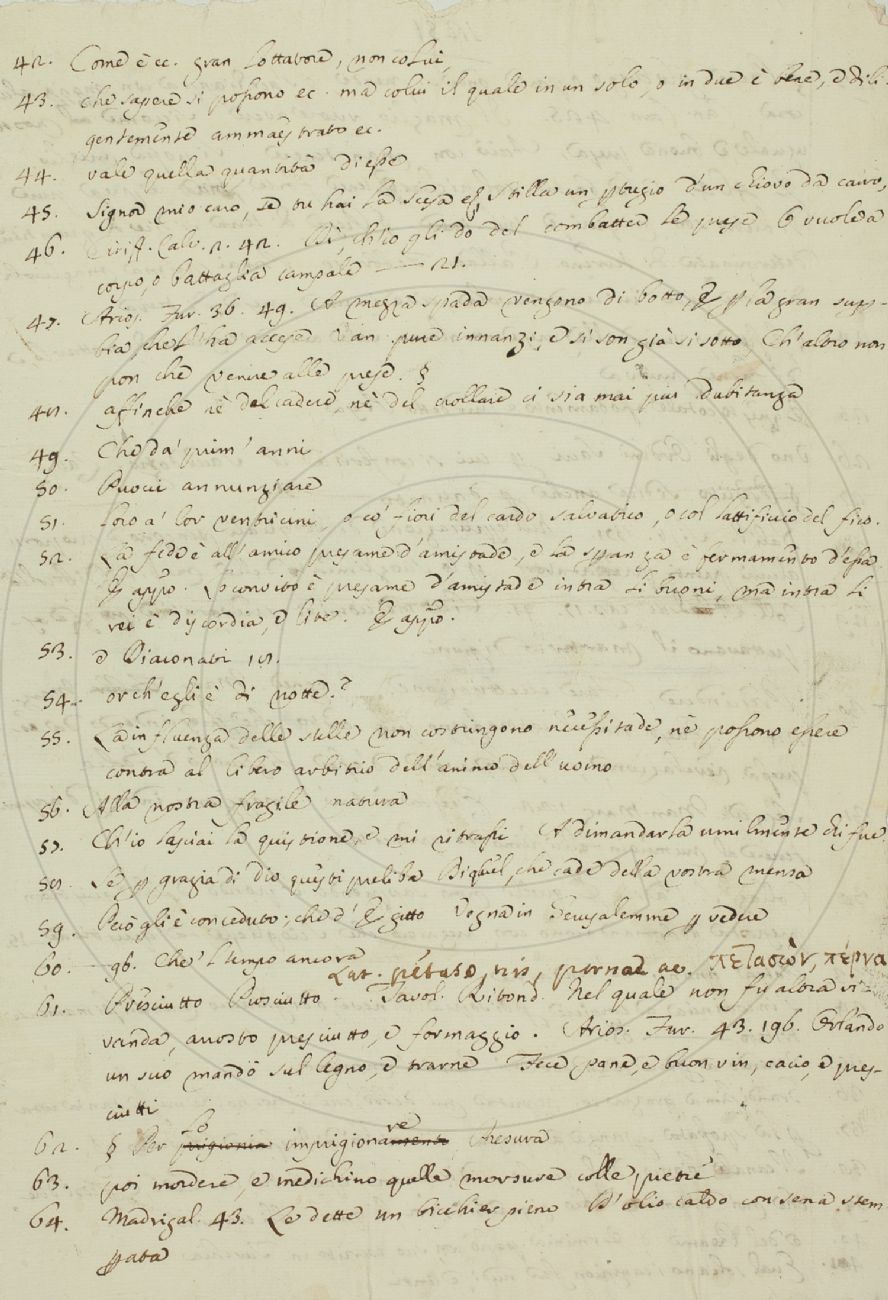 42. Come è ec. gran lottatore, non colui,
43. che sapere si possono ec. ma colui il quale in un solo, o in due è bene, e dili-
gentemente ammaestrato ec.
44. vale quella quantità d'esse
45. Signor mio caro, se tu hai la scesa stilla un ptugio d'un chiovo da cavo,
46. Ciriff. Calv. 2. 42. Dì, ch'io gli do del combatter le prese O vuole a
corpo, o battaglia campale — 21.
47. Arios. Fur. 36. 49. A mezza spada vengono di botto, E p la gran supp-
bia, che l'ha accese Van pure innanzi, e si son già sì sotto, Ch'altro non
pon che venire alle prese. §
48. affinche nè del cadere, nè del crollare ci sia mai più dubitanza
49. Che da' prim' anni
50. annunziare
51. loro a' lor ventricini, o co' fiori del cardo salvatico, o col lattificio del fico.
52. La fede è all'amico presame d'amistade, e la speranza è fermamento d'essa
E appo. Lo convito è presame d'amistade intra li buoni, ma intra li
rei è discordia, e lite. E appo.
53. e Diaconati 18.
54. or ch'egli è di notte.?
55. La influenza delle stelle non costringono necessitade, nè possono essere
contra al libero arbitrio dell'animo dell'uomo
56. Alla nostra fragile natura
57. Ch'io lasciai la quistione, e mi ritrassi A dimandarla umilmente chi fue
58. Se p grazia di Dio questi preliba Di quel, che cade della vostra mensa
59. Però gli è conceduto, che d'Egitto Vegna in Jerusalemme p vedere
60. — 96. Che 'l tempo ancora
Lat. petaso, nis, perna ae. πετασὼν, πέρνα
61. Presciutto Prosciutto. Tavol. Ritond. Nel quale non fu altra vi-
vanda, arrosto presciutto, e formaggio. Arios. Fur. 43. 196. Orlando
un suo mandò sul legno, e trarne Fece pane, e buon vin, cacio, e pres-
ciutti
62. § Per lo prigionia imprigionamento re Chesura
63. poi mordere, e medichino quelle morsure colle pietre
64. Madrigal. 43. Le dette un bicchier pieno D'olio caldo con sena stem
pata